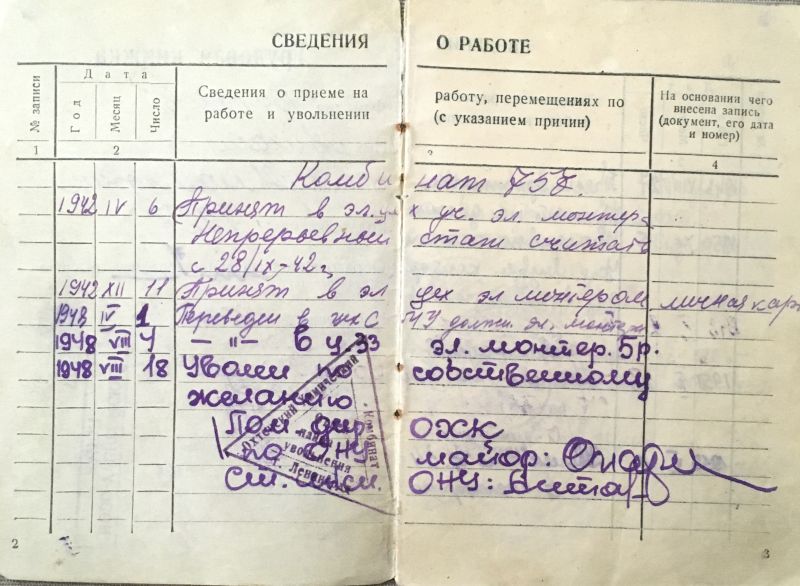 СВЕДЕНИЯ О РАБОТЕ
№ записи
Дата
Год
Месяц
Число
Сведения о приеме на работу, перемещениях по
работе и увольнении (с указанием причин)
На основании чего
внесена запись
(документ, его дата
и номер)
1 2 3 4
Комбинат 757.
1942 IV 6 Принят в эл. цех уч. эл. монтера
Непрерывный стаж считать
с 28/IX-42г.
1942 XII 11 Принят в эл цех эл монтером личная кар
1948 IV 1 Переведен в должн. эл. монтера
1948 VIII 4 — " — в ц 33 эл. монтер. 5 р.
1948 VIII 18 Уволен по собственному
желанию
Пом дир ОХК
по ОНУ майор:
ОНУ:
Охтенский Химический Комбинат
увольнения
г. Ленинград
2
3